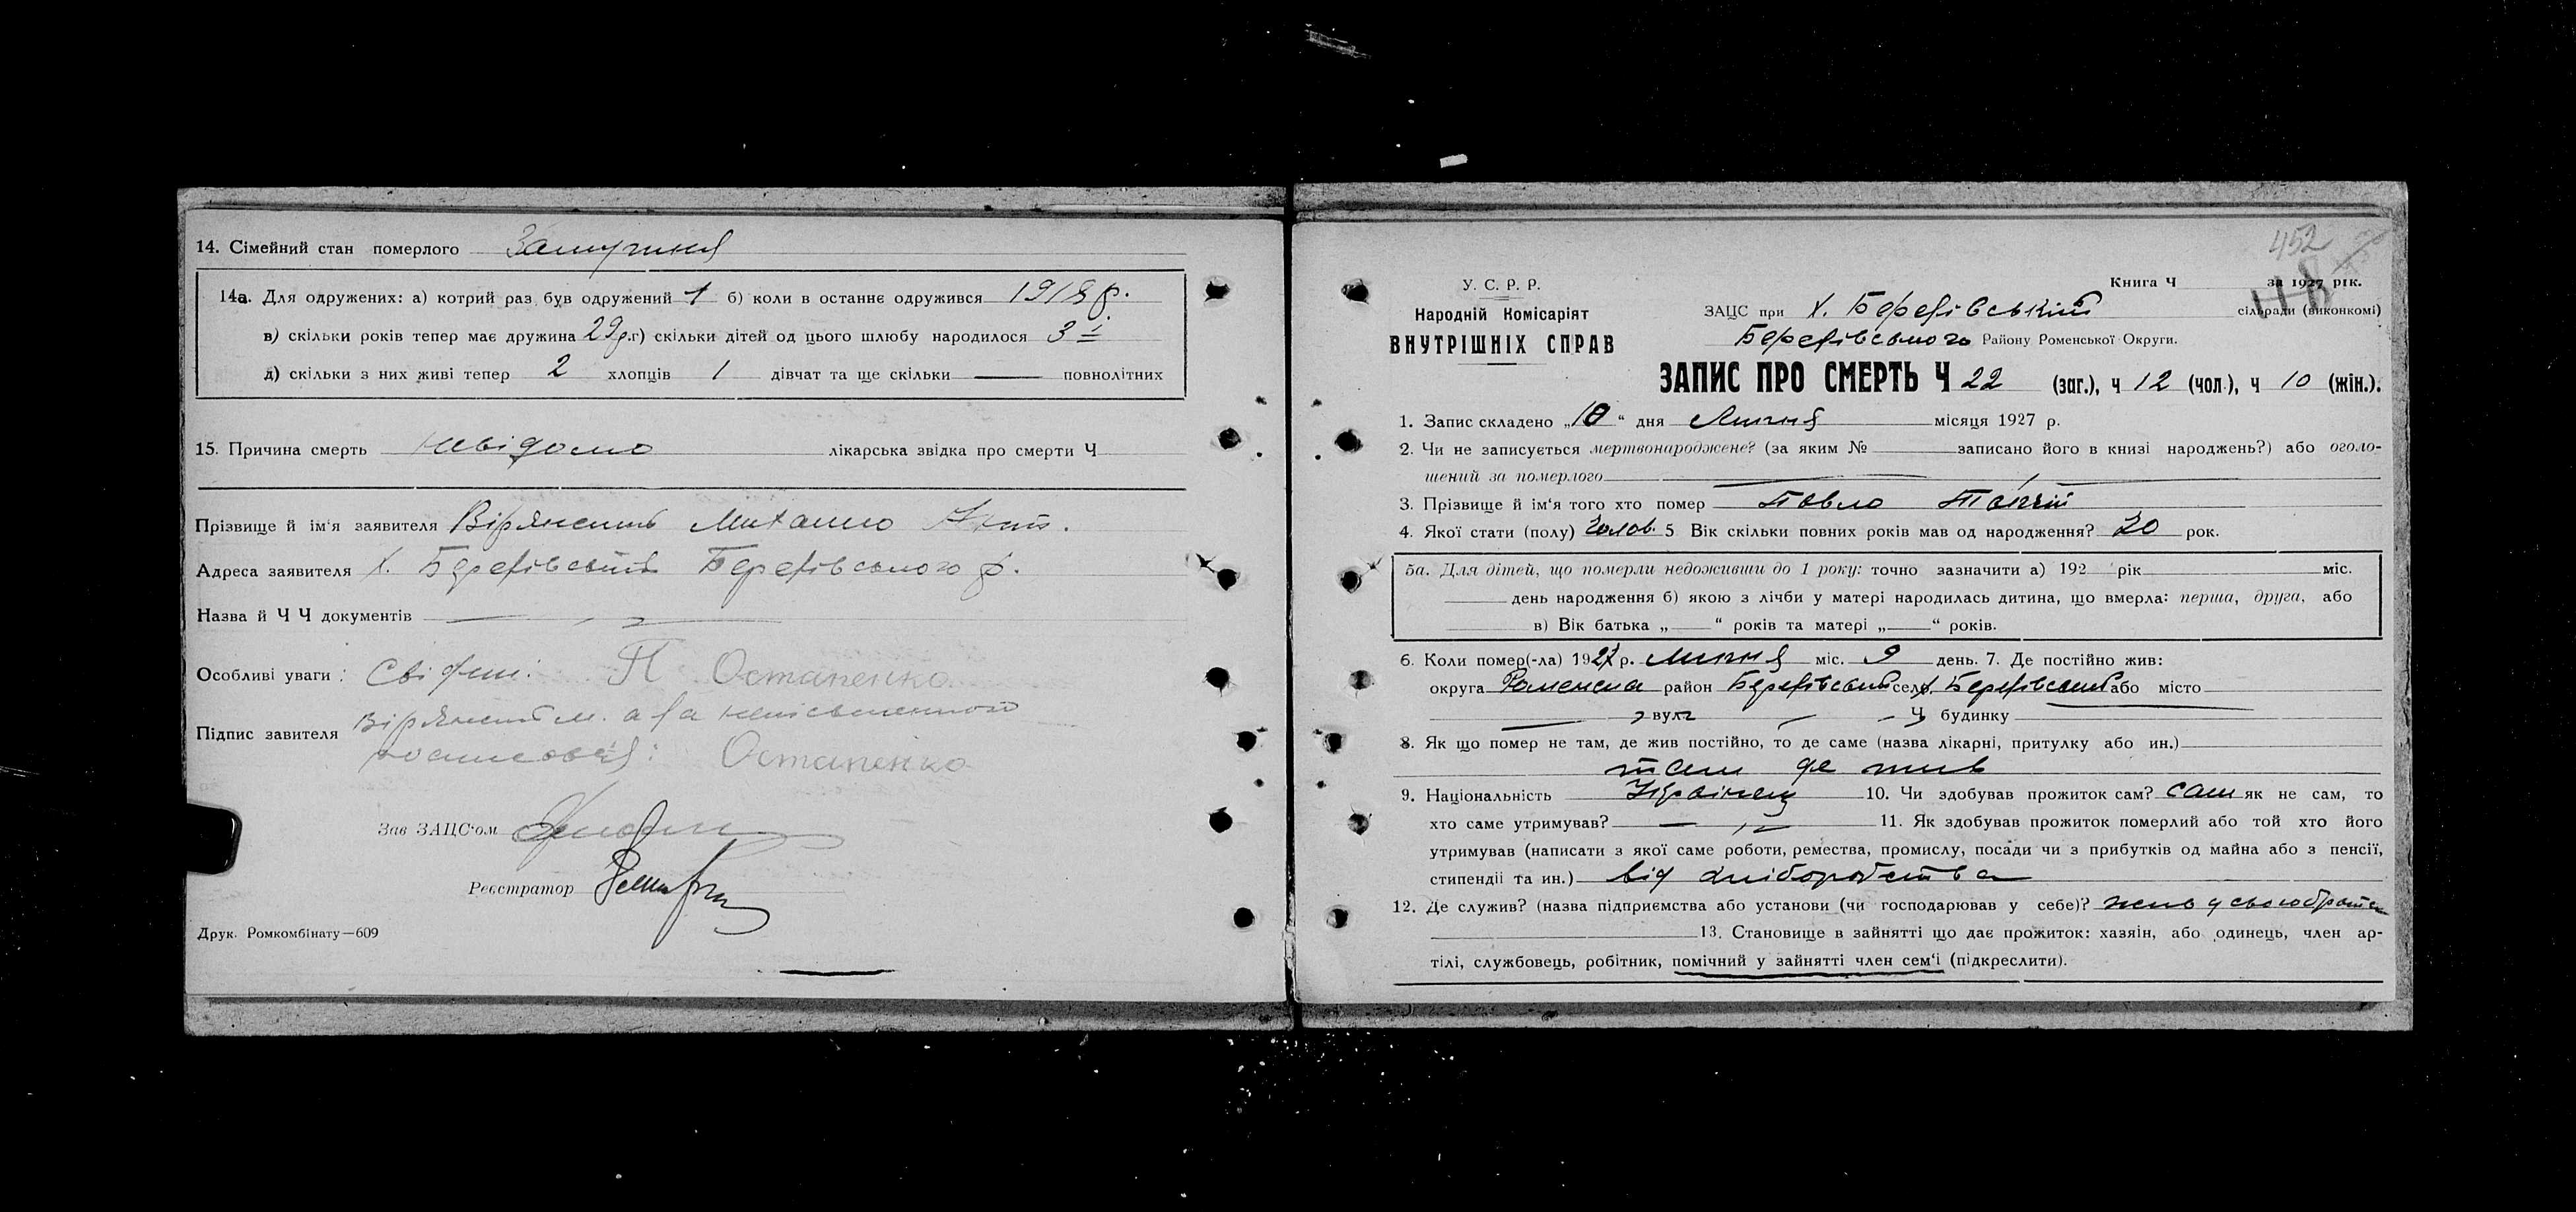 14. Сімейний стан померлого Замужня
14а. Для одружених: а) котрий раз був одружений 1 б) коли в останнє одружився 1918 р.
в) скільки років тепер має дружина 29 р. г) скільки дітей од цього шлюбу народилося 3
д) скільки з них живі тепер 2 хлопців 1 дівчат та ще скільки — повнолітних
15. Причина смерть невідомо лікарська звідка про смерти Ч
Прізвище й ім'я заявителя Михайло
Адреса заявителя х. Березівський Березівського р.
Назва й Ч Ч документів —
Особливі уваги: Свідки: П Остапенко
Підпис завителя м. а за неписьменного
росписовся: Остапенко
Зав ЗАЦС'ом
Реєстратор
Друк. Ромкомбінату—609
452
118
У. С. Р. Р.
Народній Комісаріят
ВНУТРІШНІХ СПРАВ
Книга Ч за 1927 рік.
ЗАЦС при х. Березівський сільради (виконкомі)
Березівського Району Роменської Округи.
ЗАПИС ПРО СМЕРТЬ Ч 22 (заг.), ч 12 (чол.), ч 10 (жін.).
1. Запис складено „10“ дня Липня місяця 1927 р.
2. Чи не записується мертвонароджене? (за яким № записано його в книзі народжень?) або оголо-
шений за померлого —
3. Прізвище й ім'я того хто помер Павло
4. Якої стати (полу) Чолов. 5 Вік скільки повних років мав од народження? 20 рок.
5а. Для дітей, що померли недоживши до 1 року: точно зазначити а) 192 рік міс.
день народження б) якою з лічби у матері народилась дитина, що вмерла: перша, друга, або
в) Вік батька „ “ років та матері „ “ років.
6. Коли помер(-ла) 1927 р. липня міс. 9 день. 7. Де постійно жив:
округа Роменська район Березівський село х. Березівський або місто
— вул. — Ч будинку
8. Як що помер не там, де жив постійно, то де саме (назва лікарні, притулку або ин.)
там де жив
9. Національність Українець 10. Чи здобував прожиток сам? сам як не сам, то
хто саме утримував? — 11. Як здобував прожиток померлий або той хто його
утримував (написати з якої саме роботи, ремества, промислу, посади чи з прибутків од майна або з пенсії,
стипендії та ин.) від хліборобства
12. Де служив? (назва підприємства або установи (чи господарював у себе)? жив у свого брата
13. Становище в зайнятті що дає прожиток: хазяін, або одинець, член ар-
тілі, службовець, робітник, помічний у зайнятті член сем'ї (підкреслити).